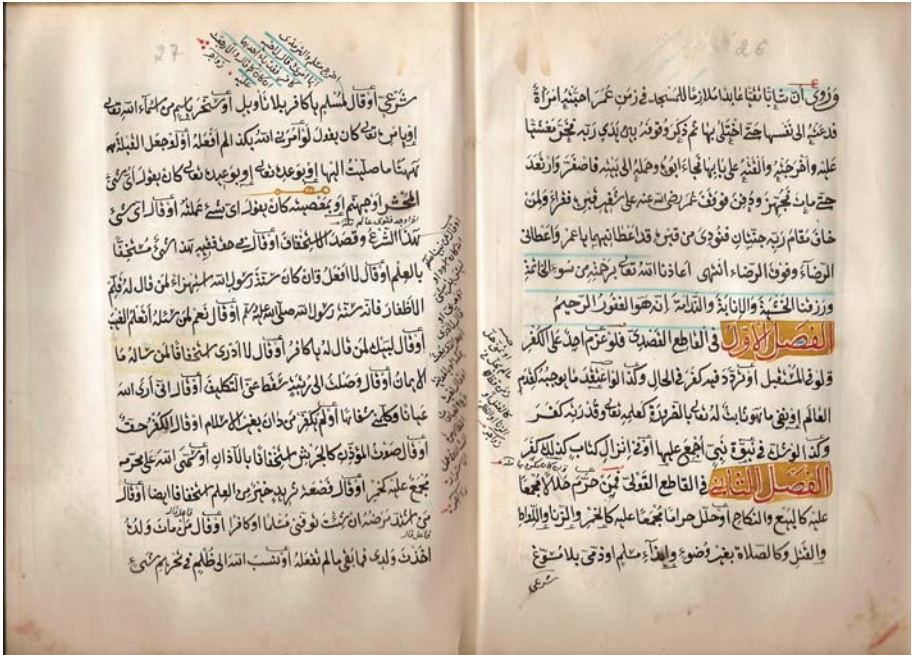 26
وروى ان شابا تقيا عابدا ملازما للمسجد في زمن عمر احبته امرأة
فدعته الى نفسها حتى اختلى بها ثم ذكر وقوفه بين يدي ربه فخر مغشيا
عليه واخرجته والقته على بابها فجاء ابوه وحمله الى بيته فاصفر وارتعد
حتى مات فجهز ودفن فوقف عمر رضي الله عنه على شفير قبره فقرأ ولمن
خاف مقام ربه جنتان فنودي من قبره قد اعطانيهما يا عمر واعطاني
الرضاء وفوق الرضاء انتهى اعاذنا الله تعالى برحمته من سوء الخاتمة
ورزقنا الخشية والإنابة والندامة إنه هو الغفور الرحيم
الفصل الأول في القاطع القصدي فلو عزم احد على الكفر
ولو في المستقبل أو تردد فيه كفر في الحال وكذا لو اعتقد ما يوجبه كقدم
العالم او نفى ما هو ثابت له تعالى بالضرورة كعلمه تعالى وقدرته كفر
وكذا لو شك في نبوة نبي أجمع عليها أو في انزال كتاب كذلك كفر
الفصل الثاني في القاطع القولي فمن حرم حلالا مجمعا
عليه كالبيع والنكاح أو حلل حراما مجمعا عليه كالخمر والزنا واللواط
والقتل وكالصلاة بغير وضوء وايذاء مسلم او ذمي بلا مسوغ
شرعي
27
شرعي أو قال لمسلم يا كافر بلا تأويل أو سخر باسم من اسماء الله تعالى
او بامره تعالى كان يقول لو امرني الله بكذا لم افعله أو لو جعل القبلة
ههنا ما صليت اليها او بوعده تعالى او بوعيده تعالى كان يقول اي شيء
المحشر او جهنم او بمعصيته كان يقول اي شيء عملته أو قال اي شيء
هذا الشرع وقصد الاستخفاف أو قال في حق فقيه هذا شيء مستخفا
بالعلم أو قال لا افعل وان كان سنة رسول الله استهزاء لمن قال له قلم
الاظفار فانه سنة رسول الله صلى الله عليه وسلم أو قال نعم لمن سئله اتعلم الغيب
أو قال لبيك لمن قال له يا كافر أو قال لا ادري استخفافا لمن ساله ما
الإيمان أو قال وصلت الى رتبة سقط عني التكليف أو قال اني أرى الله
عيانا ويكلمني شفاها أو لم يكفر من دان بغير الاسلام او قال الكفر حق
أو قال صوت المؤذن كالجرس استخفافا بالآذان أو سمى الله على محرم
مجمع عليه كخمر أو قال قصعة ثريد خير من العلم استخفافا ايضا أو قال
من اشتد مرضه ان شئت توفني مسلما او كافرا أو قال من مات ولده
اخذت ولدي فما بقي ما لم تفعله أو نسب الله الى ظلم في تحريم شيء